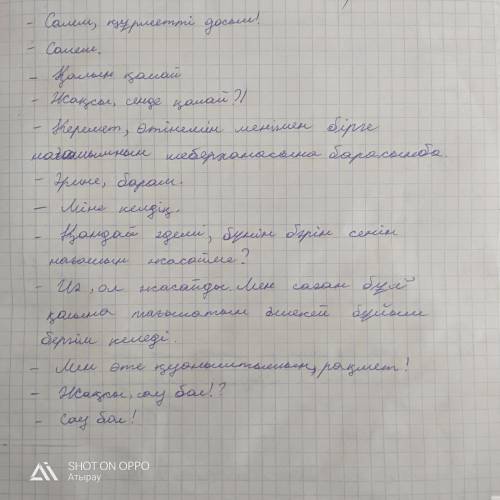 - Салем, құрметті досым!
- Салем.
- Қалың қалай
- Жақсы, сенде қалай?!
- Керемет, өтінемін менімен бірге
нағашымның шеберханасына барасыңба.
- Әрине, барам.
- Міне келдік.
- Қандай әдемі, бұнін бәрін сенін
нағашың жасайме?
- Иә, ол жасайды. Мен саған бұл
қасына тағылатын әшекей бұйым
бергім келеді.
- Мен өте қуаныштымын, рақмет!
- Жақсы, сау бол!?
- Сау бол!
SHOT ON OPPO
Атырау